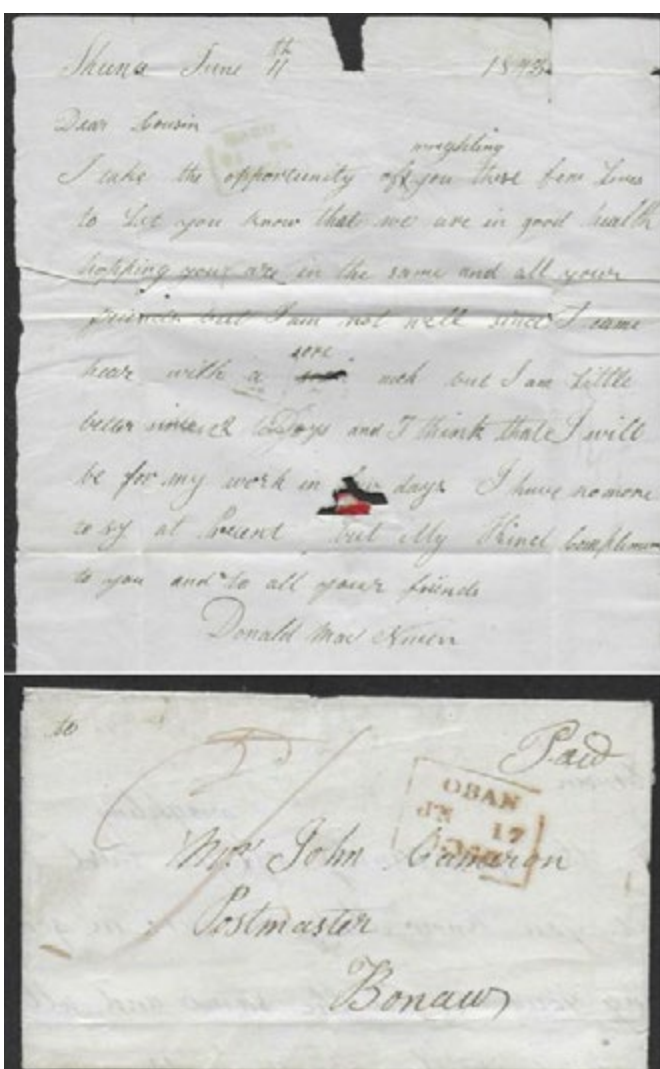 Shuna June 11th 1843
Dear Cousin
wrighting
I take the opportunity of you these few Lines
to Let you know that we are in good health
hopping your are in the same and all your
friends but I am not well since I came
sore
hear with a nek but I am Little
since and I think that I will
be for my work in few days I have no more
to sy at but My Kind Complimen
to you and to all your friends
Donald Mac Niven
to
Paid
OBAN
JN 17
Mr John Cameron
Postmaster
Bonaw